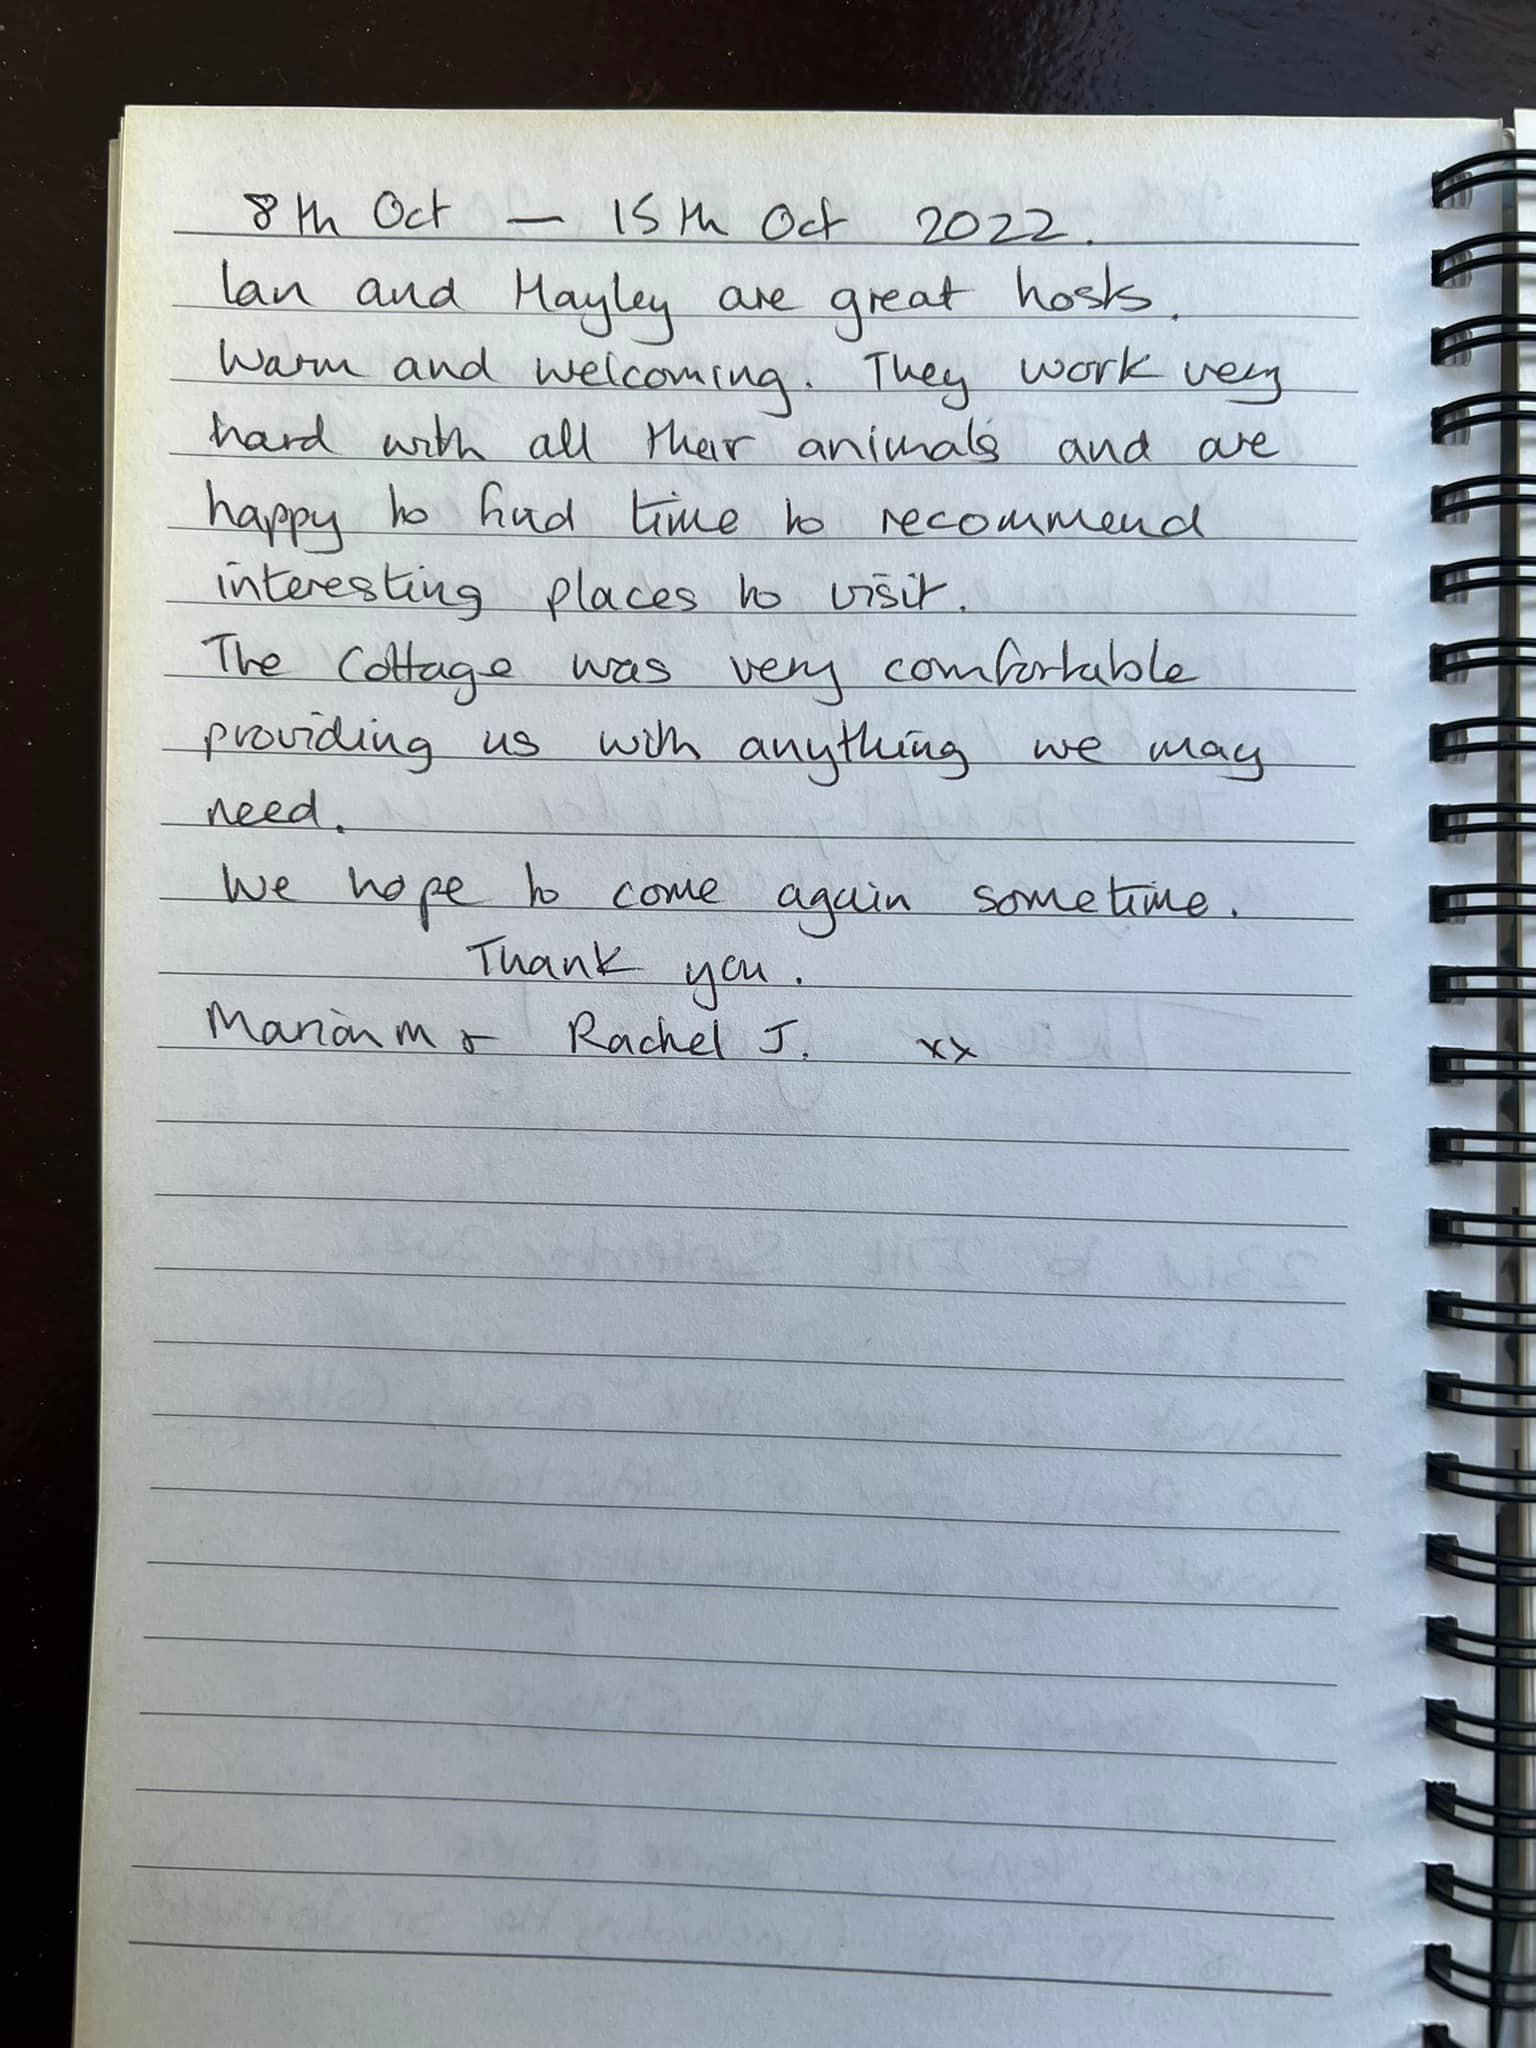 8th Oct — 15th Oct 2022.
Ian and Hayley are great hosts.
Warm and welcoming. They work very
hard with all their animals and are
happy to find time to recommend
interesting places to visit.
The Cottage was very comfortable
providing us with anything we may
need.
We hope to come again sometime.
Thank you.
Marion M & Rachel J. xx